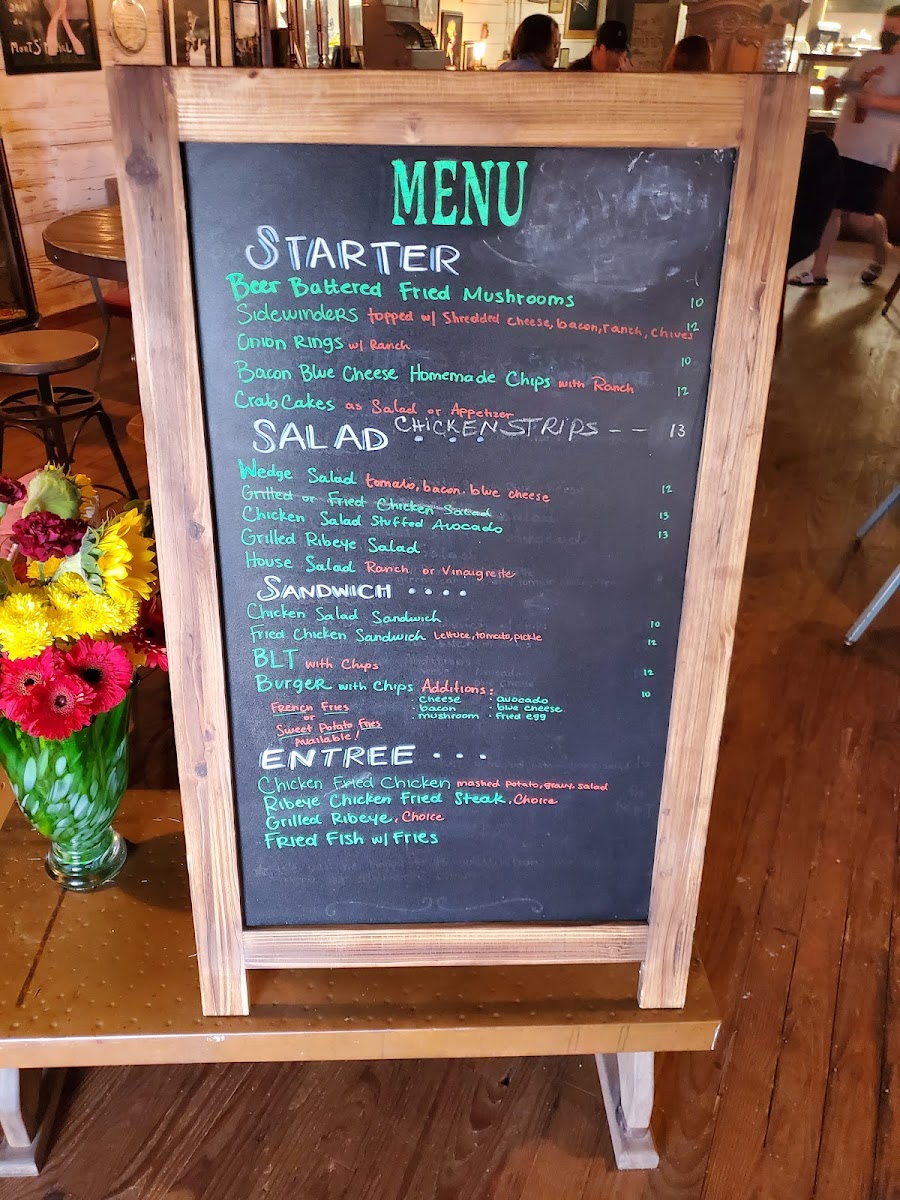 MENU
STARTER
Beer Battered Fried Mushrooms 10
Sidewinders topped w/ Shredded cheese, bacon, ranch, chives 12
Onion Rings w/ Ranch 10
Bacon Blue Cheese Homemade Chips with Ranch 12
Crab Cakes as Salad or Appetizer
CHICKEN STRIPS -- 13
SALAD ...
Wedge Salad tomato, bacon, blue cheese 12
Grilled or Fried Chicken Salad 13
Chicken Salad Stuffed Avocado 13
Grilled Ribeye Salad
House Salad Ranch or Vinaugreite
SANDWICH ....
Chicken Salad Sandwich 10
Fried Chicken Sandwich Lettuce, tomato, pickle 12
BLT with Chips 12
Burger with Chips Additions: 10
· cheese · avocado
· bacon · blue cheese
· mushroom · fried egg
French Fries
or
Sweet Potato Fries
Available!
ENTREE ...
Chicken Fried Chicken mashed potato, gravy, salad
Ribeye Chicken Fried Steak, Choice
Grilled Ribeye, Choice
Fried Fish w/ Fries